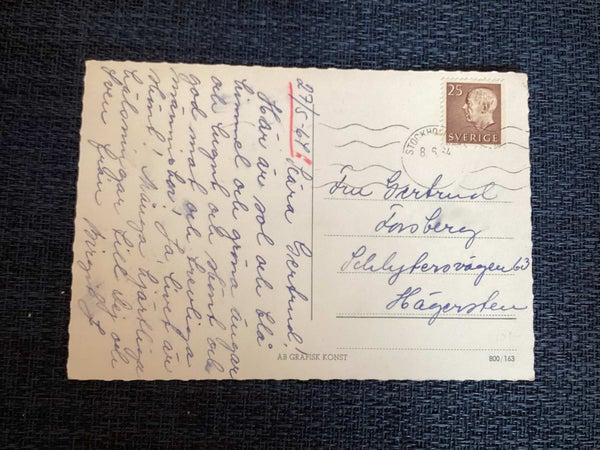 27/5-64. Kära Gertrud.
Här är sol och blå
himmel och gröna ängar
och lugnt och skönt och
god mat och trevliga
människor! Ja, livet är
skönt! Många hjärtliga
hälsningar till Dej och
från Birgit
25
SVERIGE
STOCKHO
8.6. 4
Fru Gertrud
Forsberg
Schlytersvägen 63
Hägersten
AB GRAFISK KONST
800/163